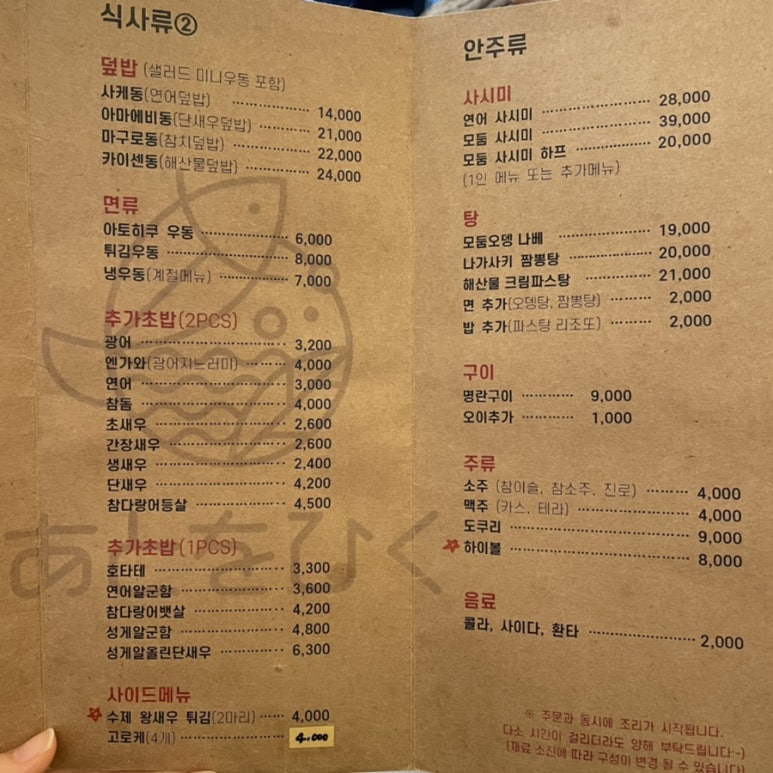 식사류②
덮밥 (샐러드 미니우동 포함)
사케동(연어덮밥) 14,000
아마에비동(단새우덮밥) 21,000
마구로동(참치덮밥) 22,000
카이센동(해산물덮밥) 24,000
면류
아토히쿠 우동 6,000
튀김우동 8,000
냉우동(계절메뉴) 7,000
추가초밥(2PCS)
광어 3,200
엔가와(광어지느러미) 4,000
연어 3,000
참돔 4,000
초새우 2,600
간장새우 2,600
생새우 2,400
단새우 4,200
참다랑어등살 4,500
추가초밥(1PCS)
호타테 3,300
연어알군함 3,600
참다랑어뱃살 4,200
성게알군함 4,800
성게알올린단새우 6,300
사이드메뉴
수제 왕새우 튀김(2마리) 4,000
고로케(4개) 4,000
あとをひく
안주류
사시미
연어 사시미 28,000
모둠 사시미 39,000
모둠 사시미 하프 20,000
(1인 메뉴 또는 추가메뉴)
탕
모둠오뎅 나베 19,000
나가사키 짬뽕탕 20,000
해산물 크림파스탕 21,000
면 추가(오뎅탕, 짬뽕탕) 2,000
밥 추가(파스탕 리조또) 2,000
구이
명란구이 9,000
오이추가 1,000
주류
소주 (참이슬, 참소주, 진로) 4,000
맥주 (카스, 테라) 4,000
도쿠리 9,000
하이볼 8,000
음료
콜라, 사이다, 환타 2,000
※ 주문과 동시에 조리가 시작됩니다.
다소 시간이 걸리더라도 양해 부탁드립니다:-)
(재료 소진에 따라 구성이 변경 될 수 있습니다)